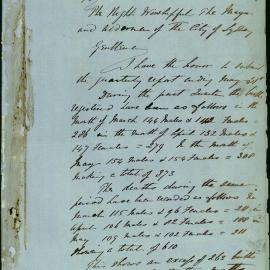 The Right Worshipful The Mayor
and Aldermen of the City of Sydney
Gentlemen
I have the honor to submit
the quarterly report ending May 31st
During the past quarter the births
registered have been as follows in the
month of March 144 males & 142 Females =
286 in the month of April 132 males &
147 Females = 279 In the month of
May 154 males & 154 Females = 308
making a total of 873
The deaths during the same
period have been recorded as follows In
March 115 males & 96 Females = 211 in
April 106 males & 82 Females = 188 in
May 109 males & 102 Females = 211
showing a total of 610
This shows an excess of 263 births